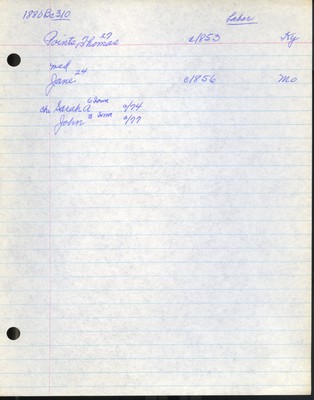 1880Bc310 Labor
Points, Thomas 27 c1853 Ky
md
Jane 24 c1856 Mo
ch Sarah A 6 Down c/74
John 3 Down c/77